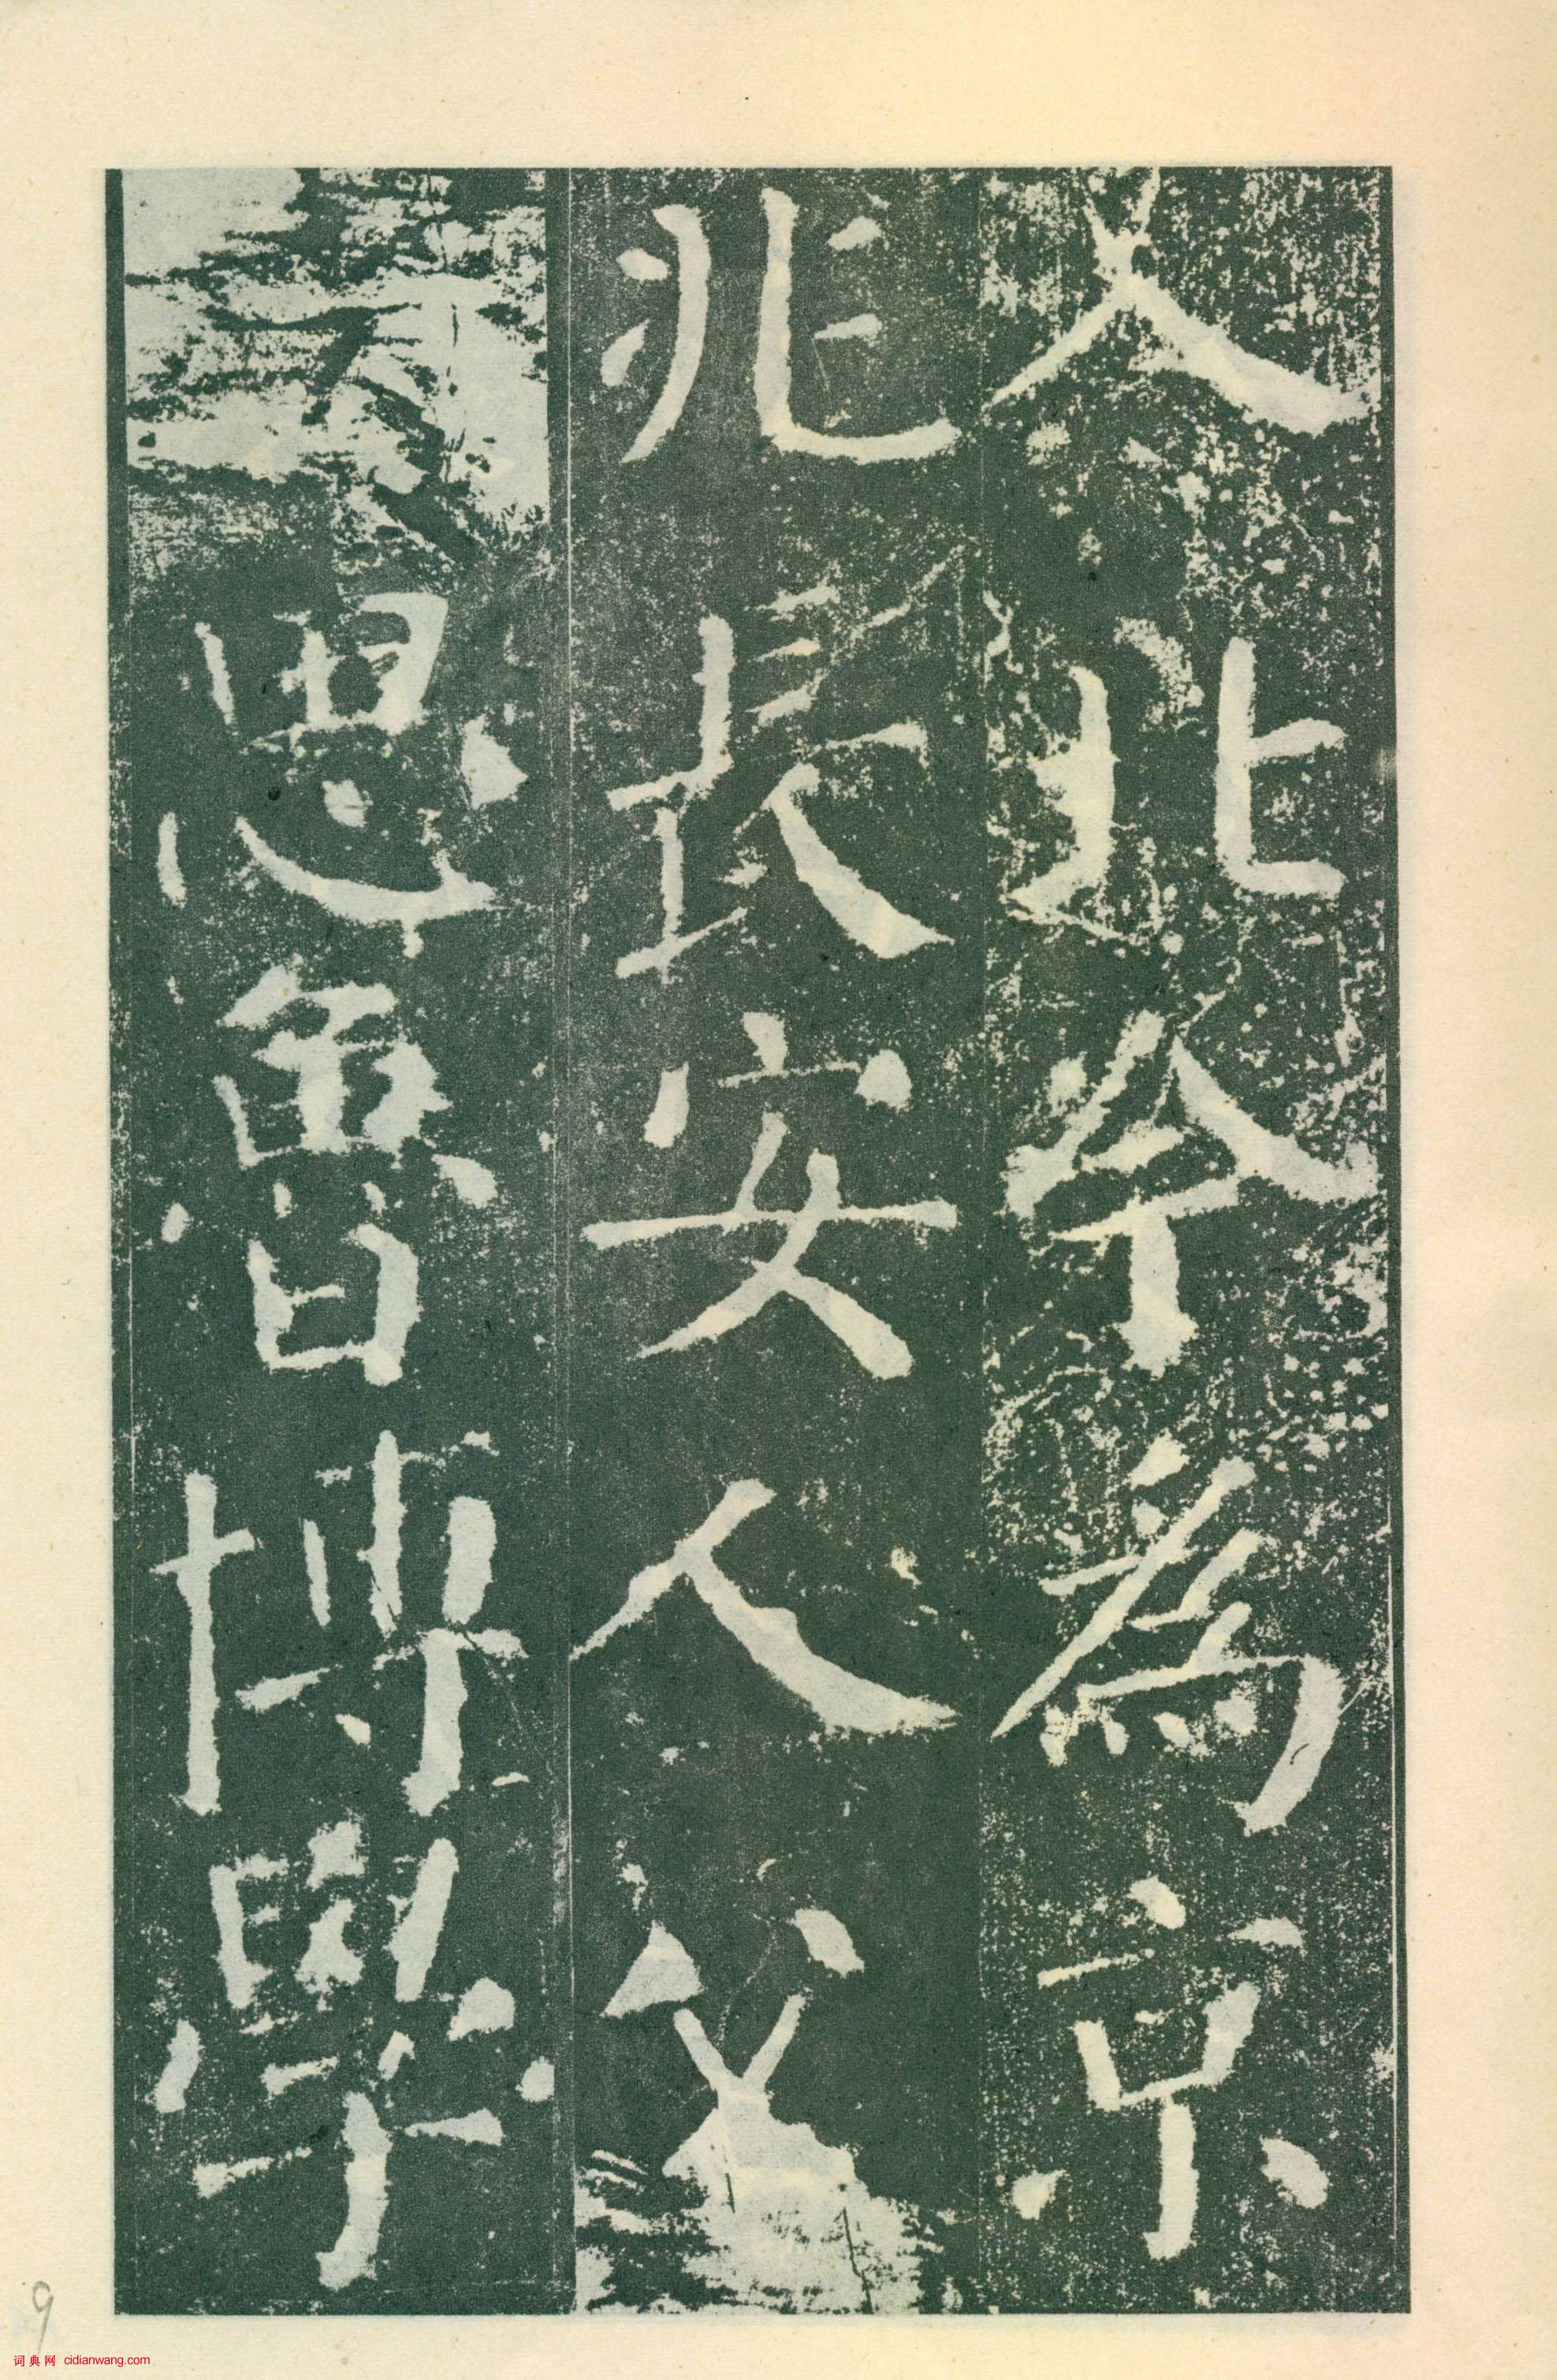 入北今為京
兆長安人父
思魯博學
9
词典网 cidianwang.com